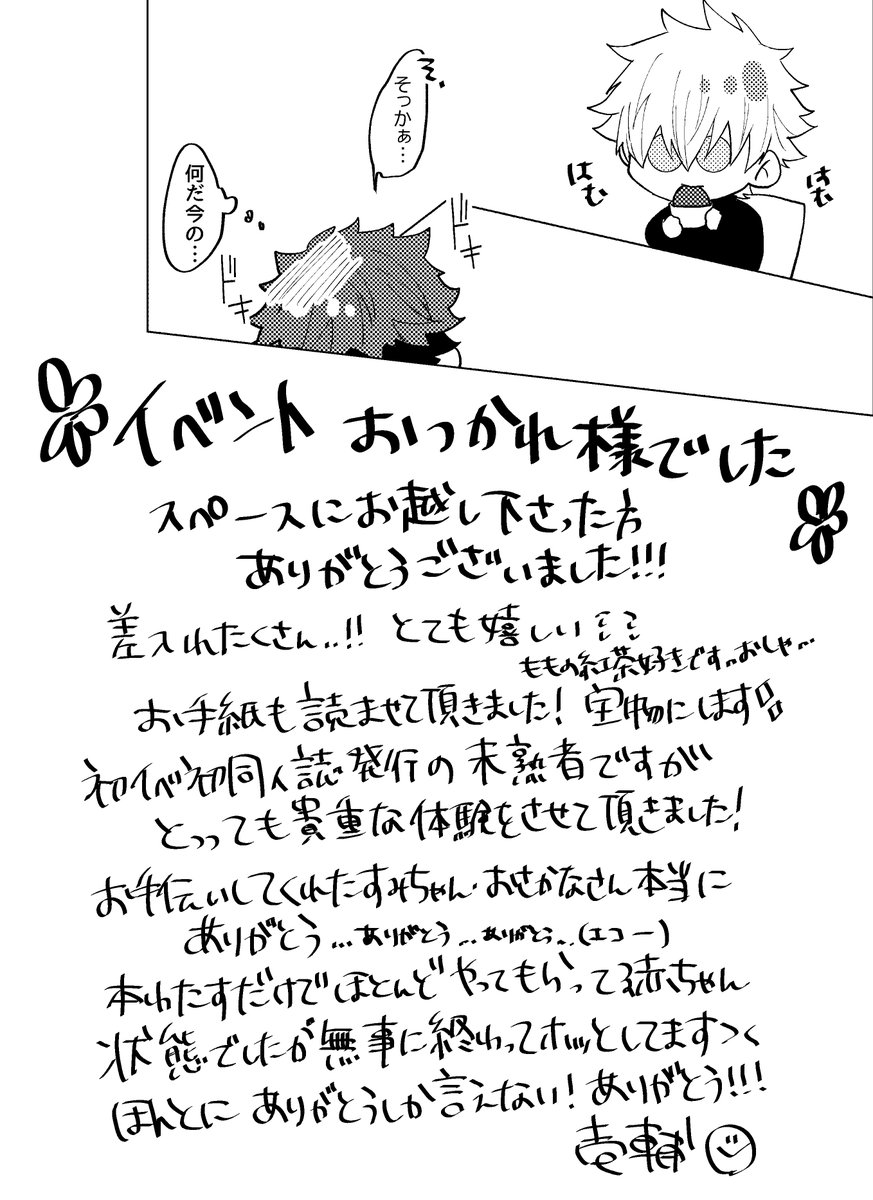 はむ
はむ
そ、
そっかぁ…
ドキ
何だ今の…
ドキ
イベントおつかれ様でした
スペースにお越し下さった方
ありがとうございました!!!
差入れたくさん..!! とても嬉しい
ももの紅茶好きです…おしゃ…
お手紙も読ませて頂きました! 宝物にします
初イベ初同人誌発行の未熟者ですが
とっっても貴重な体験をさせて頂きました!
お手伝いしてくれたすみちゃん・おさかなさん本当に
ありがとう…ありがとう…ありがとう…(エコー)
本わたすだけでほとんどやってもらって赤ちゃん
状態でしたが無事に終わってホッとしてます><
ほんとにありがとうしか言えない! ありがとう!!!
壱輔